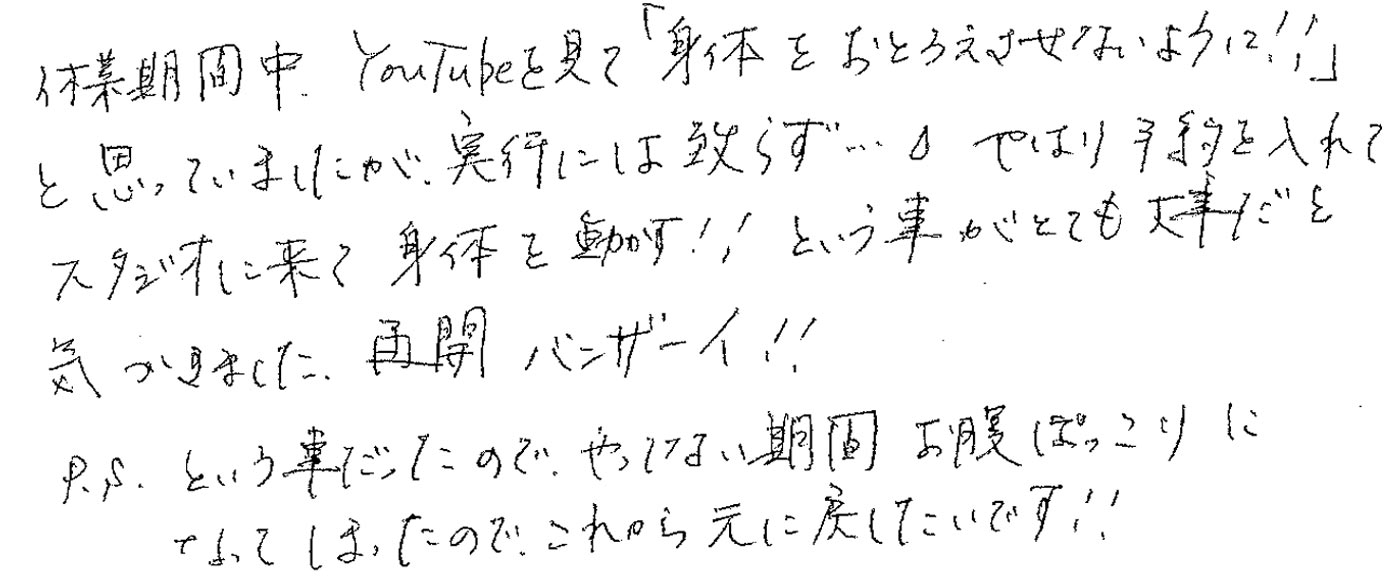 休業期間中、YouTubeを見て「身体をおとろえさせないように!!」
と思っていましたが、実行には致らず…。やはり予約を入れて
スタジオに来て身体を動かす!!という事がとても大事だと
気づきました。再開バンザーイ!!
P.S. という事だったので、やってない期間お腹ぽっこりに
なってしまったので、これから元に戻したいです!!